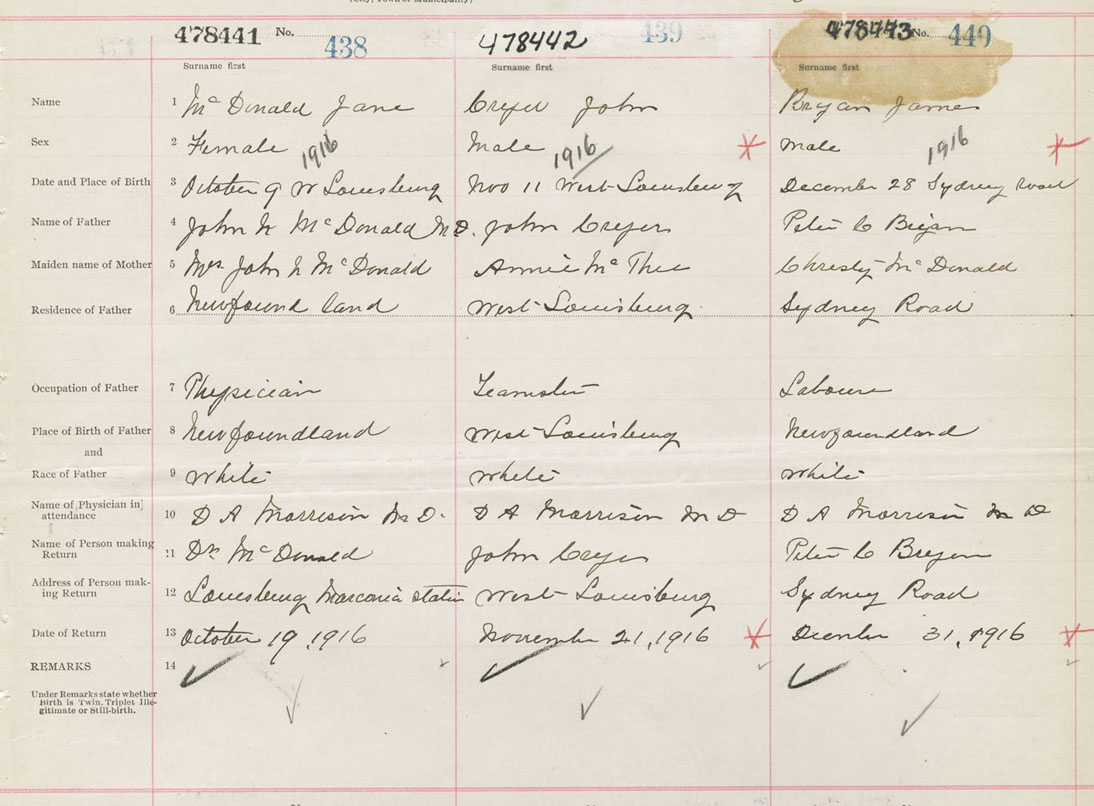 478441 No. 438 478442 439 478443 No. 440
Surname first Surname first Surname first
Name 1 Mc Donald Jane Cryer John Bryan James
Sex 2 Female 1916 Male 1916 Male 1916
Date and Place of Birth 3 October 9 W Louisburg Nov 11 West Louisburg December 28 Sydney Road
Name of Father 4 John N McDonald M D. John Cryer Peter C Bryan
Maiden name of Mother 5 Mrs John N McDonald Annie Mc Phee Christy McDonald
Residence of Father 6 Newfound land West Louisburg Sydney Road
Occupation of Father 7 Physician Teamster Labourer
Place of Birth of Father 8 Newfoundland West Louisburg Newfoundland
and
Race of Father 9 White White White
Name of [Physician in]
attendance 10 D A Morrison M D. D A Morrison M D D A Morrison M D
Name of Person making
Return 11 Dr McDonald John Cryer Peter C Bryan
Address of Person mak-
ing Return 12 Louisburg Marconi station West Louisburg Sydney Road
Date of Return 13 October 19, 1916 November 21, 1916 December 31, 1916
REMARKS 14
Under Remarks state whether
Birth is Twin, Triplet Ille-
gitimate or Still-birth.